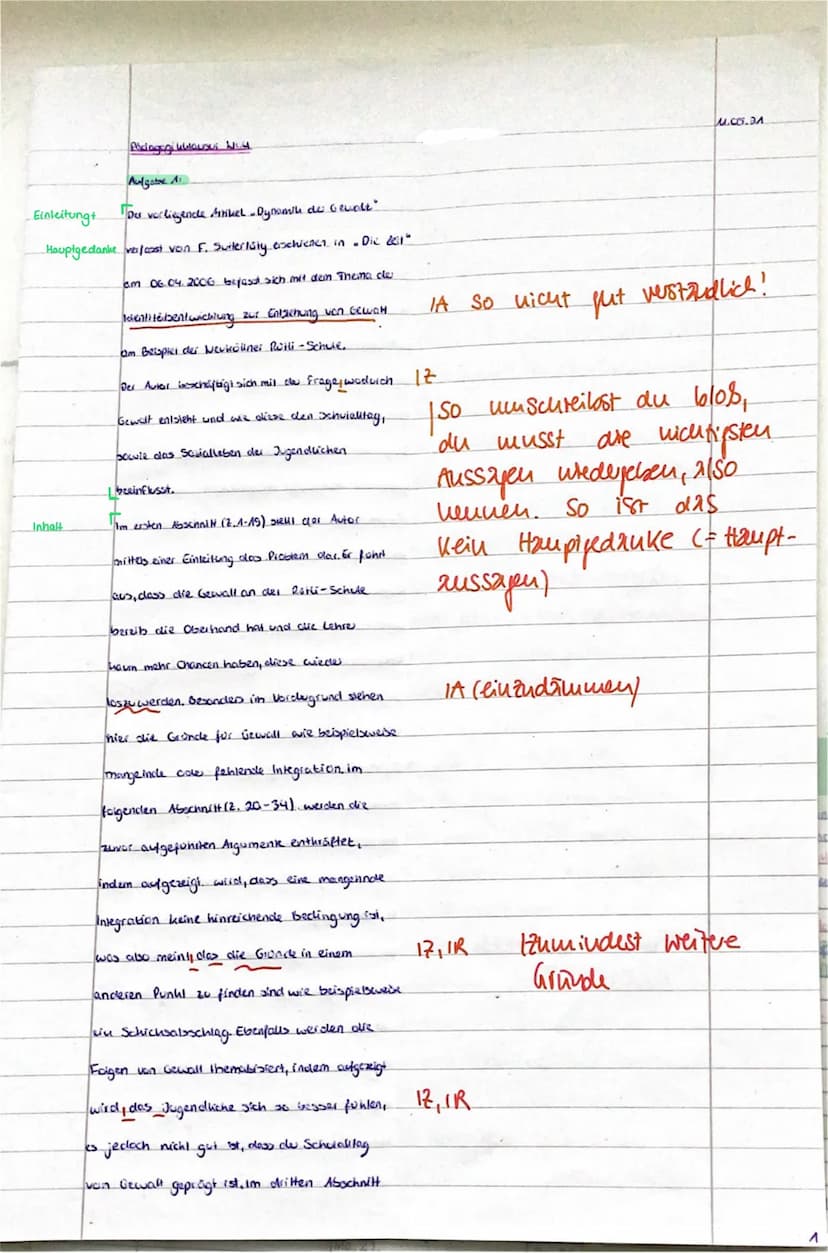 11.05.21
Pädagogikklausur Nr.4
Aufgabe 1:
Einleitung+
Hauptgedanke
Der vorliegende Artikel „Dynamik der Gewalt"
verfasst von F. Sutterlüty erschienen in „Die Zeit"
am 06.04.2006 befasst sich mit dem Thema der
Identitätsentwicklung zur Entstehung von Gewalt
1A so nicht gut verständlich!
am Beispiel der Neuköllner Rütli-Schule.
Der Autor beschäftigt sich mit der Frage, wodurch
1Z
Gewalt entsteht und wie diese den Schulalltag,
sowie das Sozialleben der Jugendlichen
beeinflusst.
So umschreibst du bloß,
du musst die wichtigsten
Aussagen wiedergeben, also
nennen. So ist das
kein Hauptgedanke (= Haupt-
aussagen)
Inhalt
Im ersten Abschnitt (Z.1-19) stellt der Autor
mittels einer Einleitung das Problem dar. Er führt
aus, dass die Gewalt an der Rütli-Schule
bereits die Oberhand hat und die Lehrer
kaum mehr Chancen haben, diese wieder
loszuwerden. Besonders im Vordergrund stehen
1A (einzudämmen)
hier die Gründe für Gewalt wie beispielsweise
mangelnde oder fehlende Integration. Im
folgenden Abschnitt (Z. 20-34) werden die
zuvor aufgeführten Argumente enthräftet,
indem aufgezeigt wird, dass eine mangelnde
Integration keine hinreichende Bedingung ist,
was also meint, das die Gründe in einem
1Z, 1R (zumindest weitere
Gründe
anderen Punkt zu finden sind wie beispielsweise
ein Schicksalsschlag. Ebenfalls werden die
Folgen von Gewalt thematisiert, indem aufgezeigt
wird, das Jugendliche sich so besser fühlen,
1Z, 1R
es jedoch nicht gut ist, dass der Schulalltag
von Gewalt geprägt ist. Im dritten Abschnitt
1